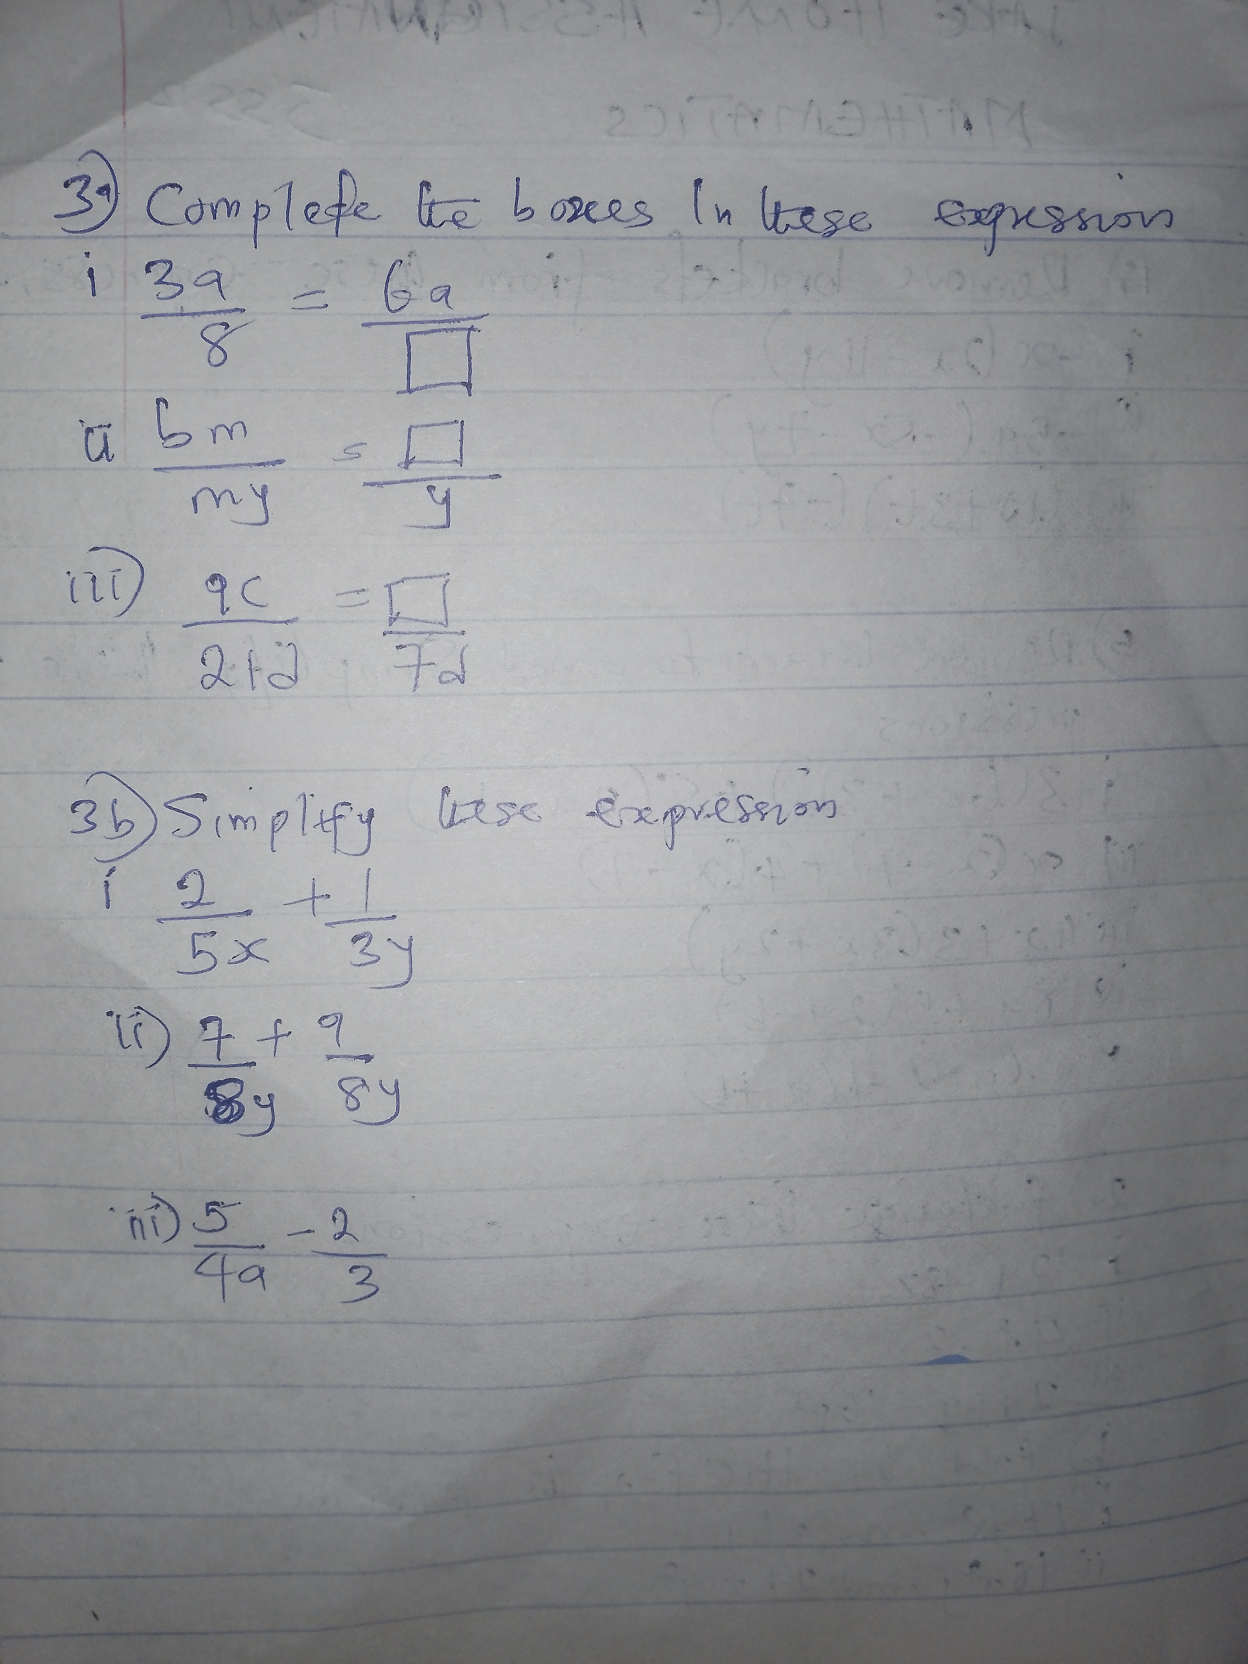 3a) Complete the boxes In these expression
i 3a/8 = 6a/□
ii bm/my = □/y
iii) 9c/21d = □/7d
3b) Simplify these expression
i 2/5x + 1/3y
ii) 7/8y + 9/8y
iii) 5/4a - 2/3